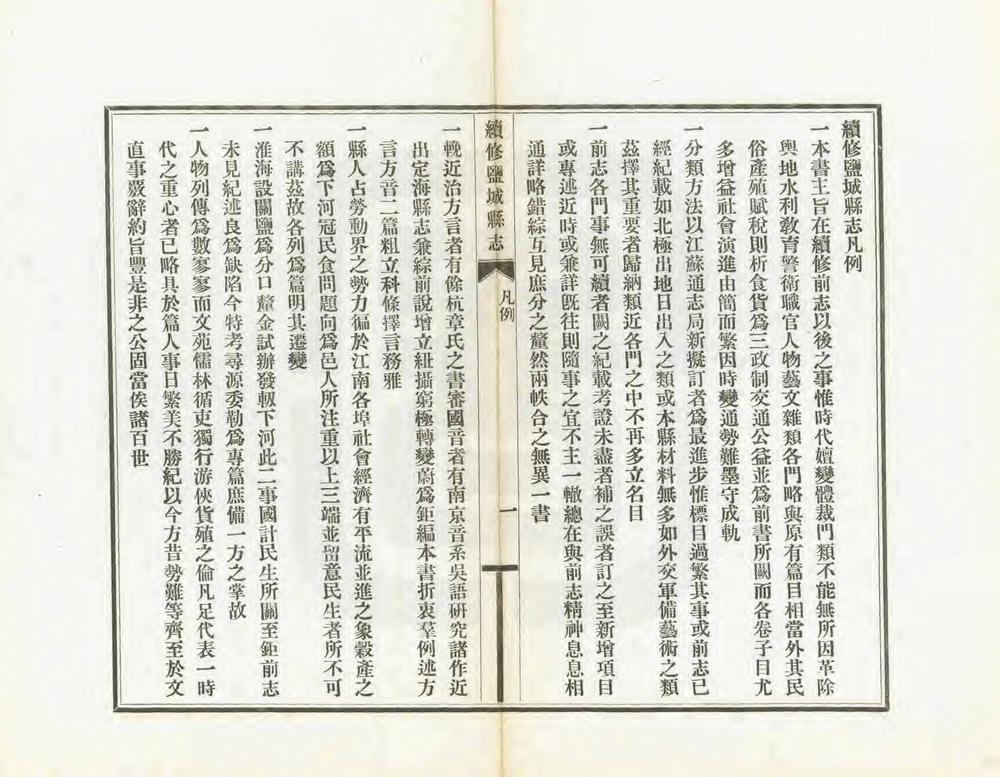 續修鹽城縣志凡例
一本書主旨在續修前志以後之事惟時代嬗變體裁門類不能無所因革除
輿地水利敎育警衛職官人物藝文雜類各門略與原有篇目相當外其民
俗產殖賦稅則析食貨爲三政制交通公益並爲前書所闕而各卷子目尤
多增益社會演進由簡而繁因時變通勢難墨守成軌
一分類方法以江蘇通志局新擬訂者爲最進步惟標目過繁其事或前志已
經紀載如北極出地日出入之類或本縣材料無多如外交軍備藝術之類
茲擇其重要者歸納類近各門之中不再多立名目
一前志各門事無可續者闕之紀載考證未盡者補之誤者訂之至新增項目
或專述近時或兼詳旣往則隨事之宜不主一轍總在與前志精神息息相
通詳略錯綜互見庶分之釐然兩帙合之無異一書
續修鹽城縣志
凡例
一
一輓近治方言者有餘杭章氏之書審國音者有南京音系吳語硏究諸作近
出定海縣志兼綜前說增立紐攝窮極轉變蔚爲鉅編本書折衷羣例述方
言方音二篇粗立科條擇言務雅
一縣人占勞動界之勢力徧於江南各埠社會經濟有平流並進之象穀產之
額爲下河冠民食問題向爲邑人所注重以上三端並留意民生者所不可
不講茲故各列爲篇明其遷變
一淮海設關鹽爲分口釐金試辦發軔下河此二事國計民生所關至鉅前志
未見紀述良爲缺陷今特考尋源委勒爲專篇庶備一方之掌故
一人物列傳爲數寥寥而文苑儒林循吏獨行游俠貨殖之倫凡足代表一時
代之重心者已略具於篇人事日繁美不勝紀以今方昔勢難等齊至於文
直事覈辭約旨豐是非之公固當俟諸百世